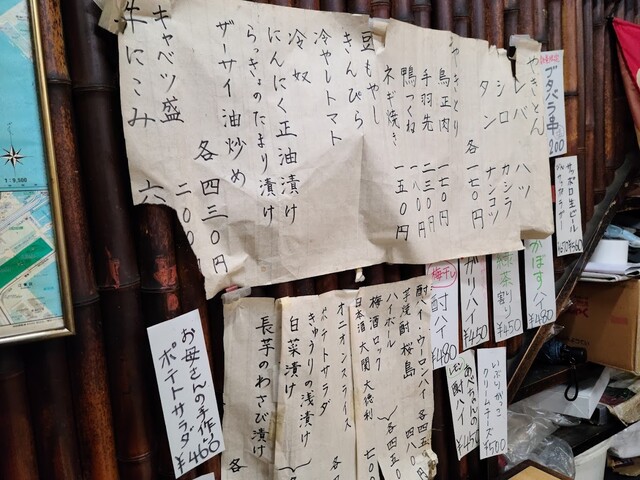 やきとん
レバ
ハツ
シロ
カシラ
タン
ナンコツ
各 一七〇円
やきとり
鳥正肉 一七〇円
手羽先 二三〇円
鴨つくね 一八〇円
ネギ焼き 一五〇円
豆もやし
きんぴら
冷やしトマト
冷奴
にんにく正油漬け
らっきょのたまり漬け
ザーサイ油炒め
各 四三〇円
キャベツ盛 二〇〇
牛にこみ 六
ブタバラ串 200
サッポロ生ビール
かぼすハイ ¥480
緑茶割り ¥450
ガリハイ ¥450
梅干し 酎ハイ ¥480
芋焼酎 桜島
ハイボール
梅酒ロック
日本酒 大関
オニオンスライス
ポテトサラダ
きゅうりの浅漬け
白菜漬け
長芋のわさび漬け
各
お母さんの手作り
ポテトサラダ
¥460
いぶりがっこ
クリームチーズ
¥500